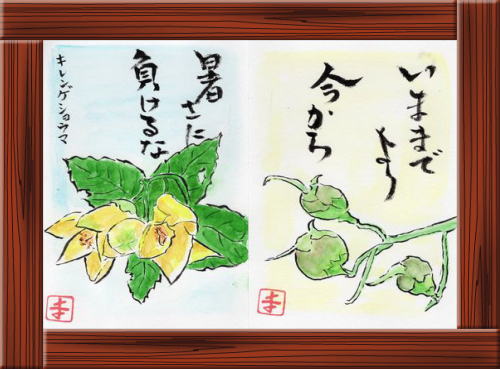 いままで
より
今から
暑さに
負けるな
キレンゲショウマ